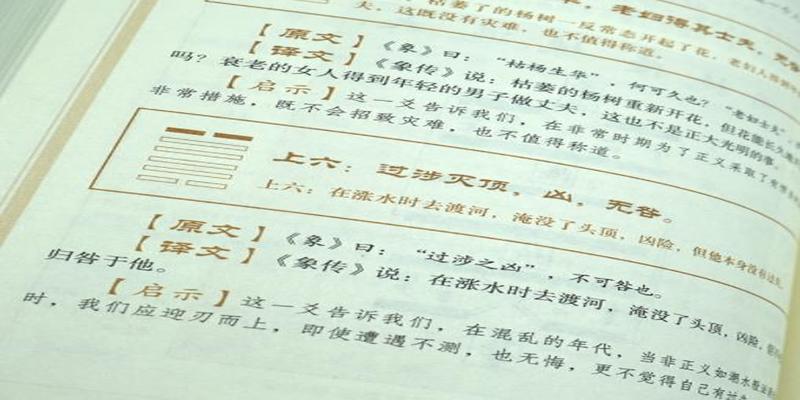 夫，这既没有灾难，也不值得称道。
枯萎了的杨树一反常态开起了花，老妇人
老妇得其士夫，无
【原文】《象》曰：“枯杨生华”，何可久也？“老妇士夫”，
【译文】《象传》说：枯萎的杨树重新开花，但花能长久
吗？衰老的女人得到年轻的男子做丈夫，这也不是正大光明的事。
【启示】这一爻告诉我们，在非常时期为了正义采取了
非常措施，既不会招致灾难，也不值得称道。
上六：过涉灭顶，凶，无咎。
上六：在涨水时去渡河，淹没了头顶，凶险，但他本身没有过
【原文】《象》曰：“过涉之凶”，不可咎也。
【译文】《象传》说：在涨水时去渡河，淹没了头顶，凶险，
归咎于他。
【启示】这一爻告诉我们，在混乱的年代，当非正义如潮水般
时，我们应迎刃而上，即使遭遇不测，也无悔，更不觉得自己有过